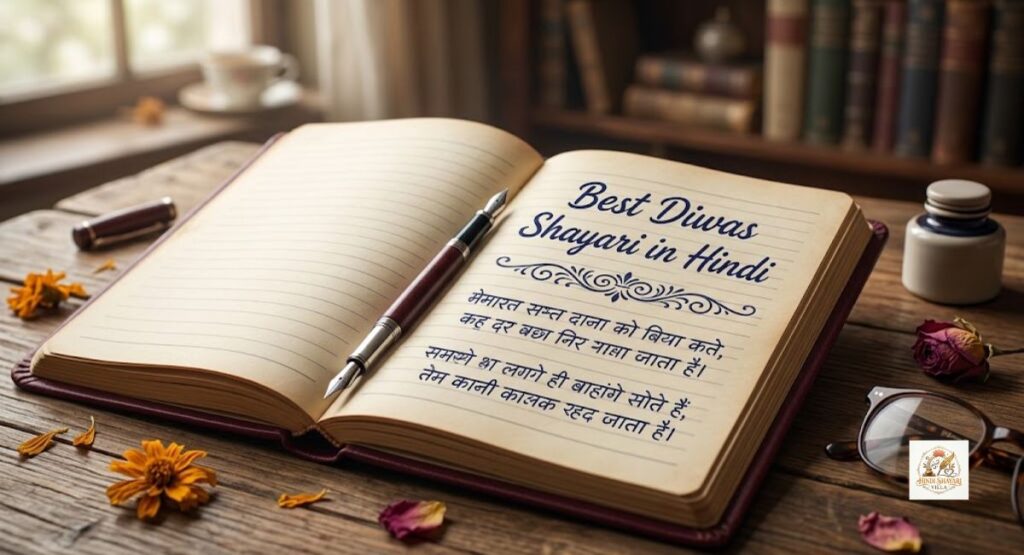 Best Diwas
Shayari in Hindi
मेमारत सस्त दाना को बिया कते,
कह दर बछा निर नाबा जाता है।
लगगे ही बाहांगे सोते हैं,
तेम कानी कालक रहद जाता है।
HINDI SHAYARI
VILLA